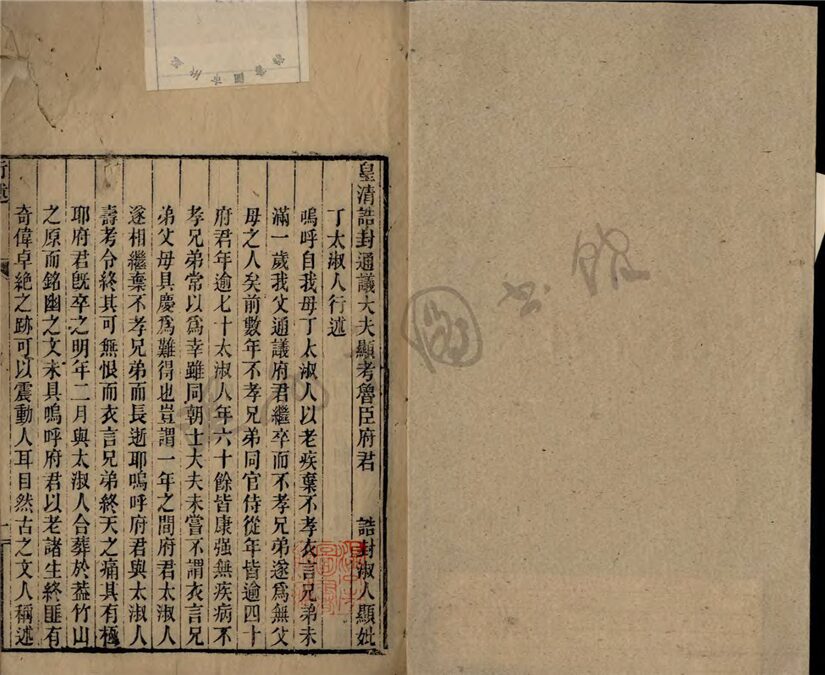 皇清誥封通議大夫顯考魯臣府君　誥封淑人顯妣
丁太淑人行述
嗚呼自我母丁太淑人以老疾棄不孝衣言兄弟未
滿一歲我父通議府君繼卒而不孝兄弟遂爲無父
母之人矣前數年不孝兄弟同官侍從年皆逾四十
府君年逾七十太淑人年六十餘皆康强無疾病不
孝兄弟常以爲幸雖同朝士大夫未嘗不謂衣言兄
弟父母具慶爲難得也豈謂一年之間府君太淑人
遂相繼棄不孝兄弟而長逝耶嗚呼府君與太淑人
壽考令終其可無恨而衣言兄弟終天之痛其有極
耶府君旣卒之明年二月與太淑人合葬於葢竹山
之原而銘幽之文未具嗚呼府君以老諸生終匪有
奇偉卓絶之跡可以震動人耳目然古之文人稱述
行述
一